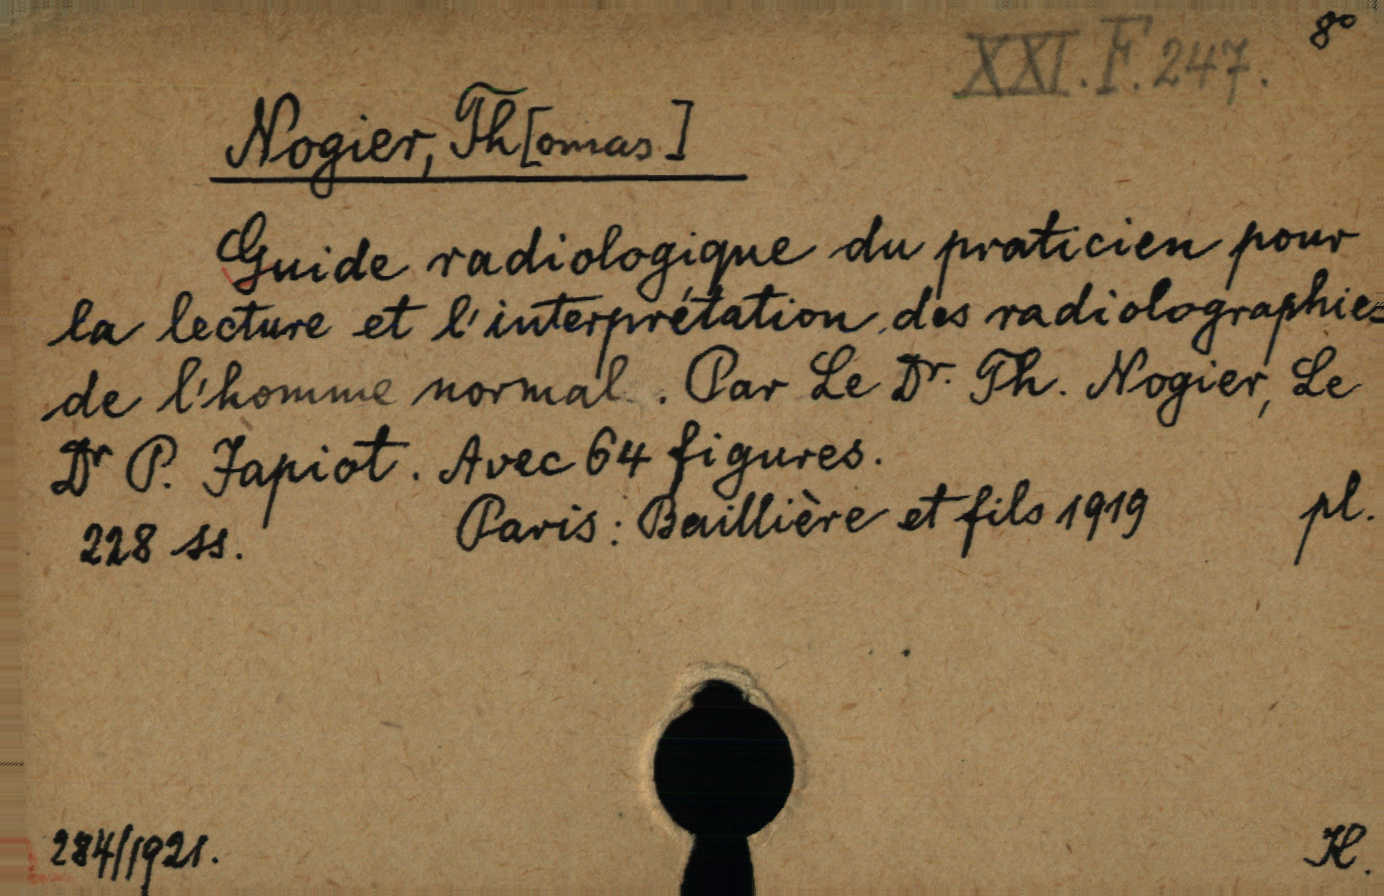 8°
XXI.F.247.
Nogier, Th[omas.]
Guide radiologique du praticien pour
la lecture et l'interprétation des radiolographies
de l'homme normal. Par Le Dr. Th. Nogier, Le
Dr P. Japiot. Avec 64 figures.
228 ss. Paris: Baillière et fils 1919 pl.
284/1921. H.